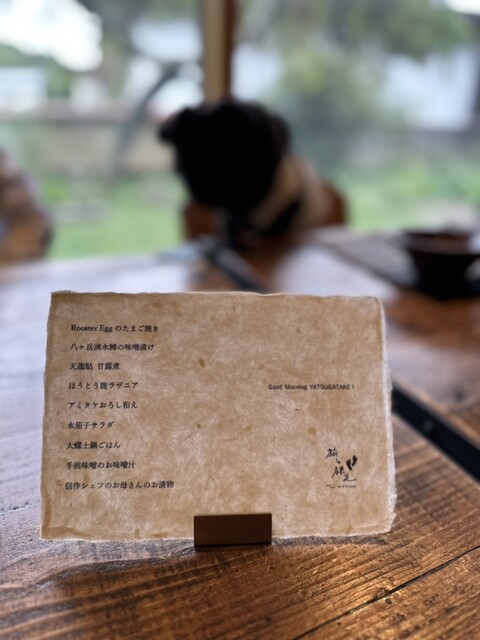 Rooster Egg のたまご焼き
八ヶ岳湧水鱒の味噌漬け
天龍鮎 甘露煮
ほうとう鹿ラザニア
アミタケおろし和え
水茄子サラダ
大塚土鍋ごはん
手前味噌のお味噌汁
信作シェフのお母さんのお漬物
Good Morning YATSUGATAKE!